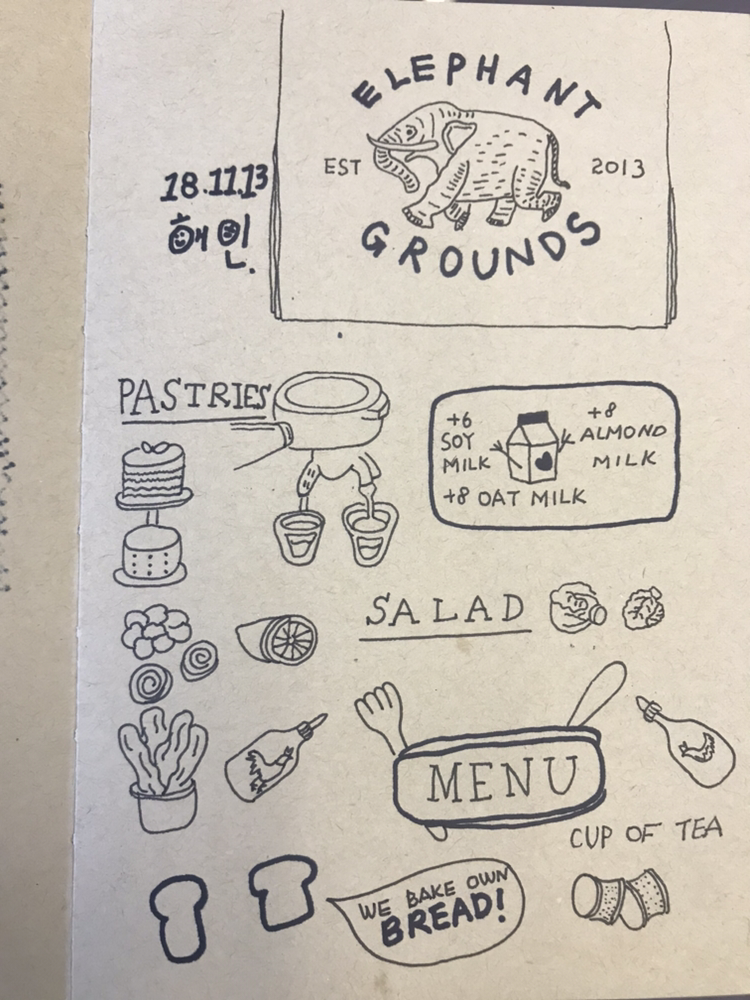 ELEPHANT
EST 2013
GROUNDS
18.11.13
해인
PASTRIES
+6
SOY
MILK
+8
ALMOND
MILK
+8 OAT MILK
SALAD
MENU
CUP OF TEA
WE BAKE OWN
BREAD!